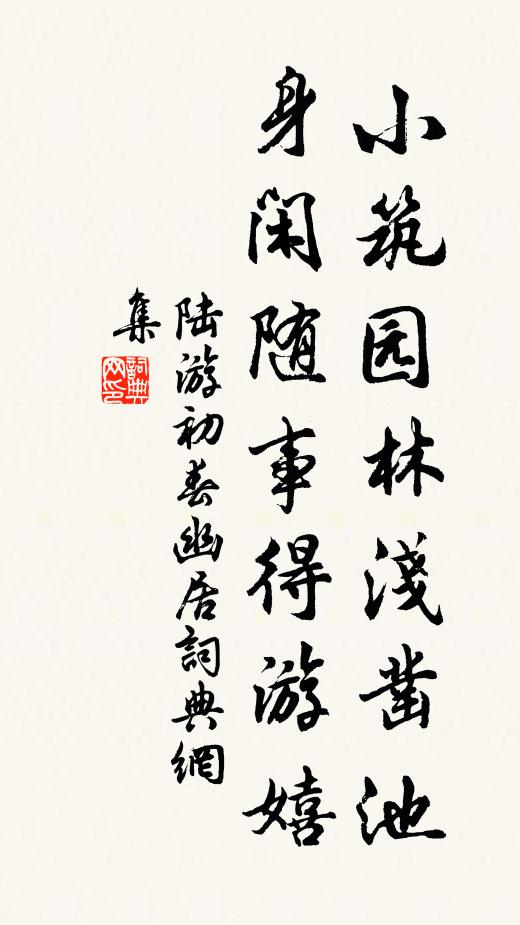 小筑园林淺凿池
身閑随事得游嬉
陆游初春幽居詞典網
集
詞典
网印